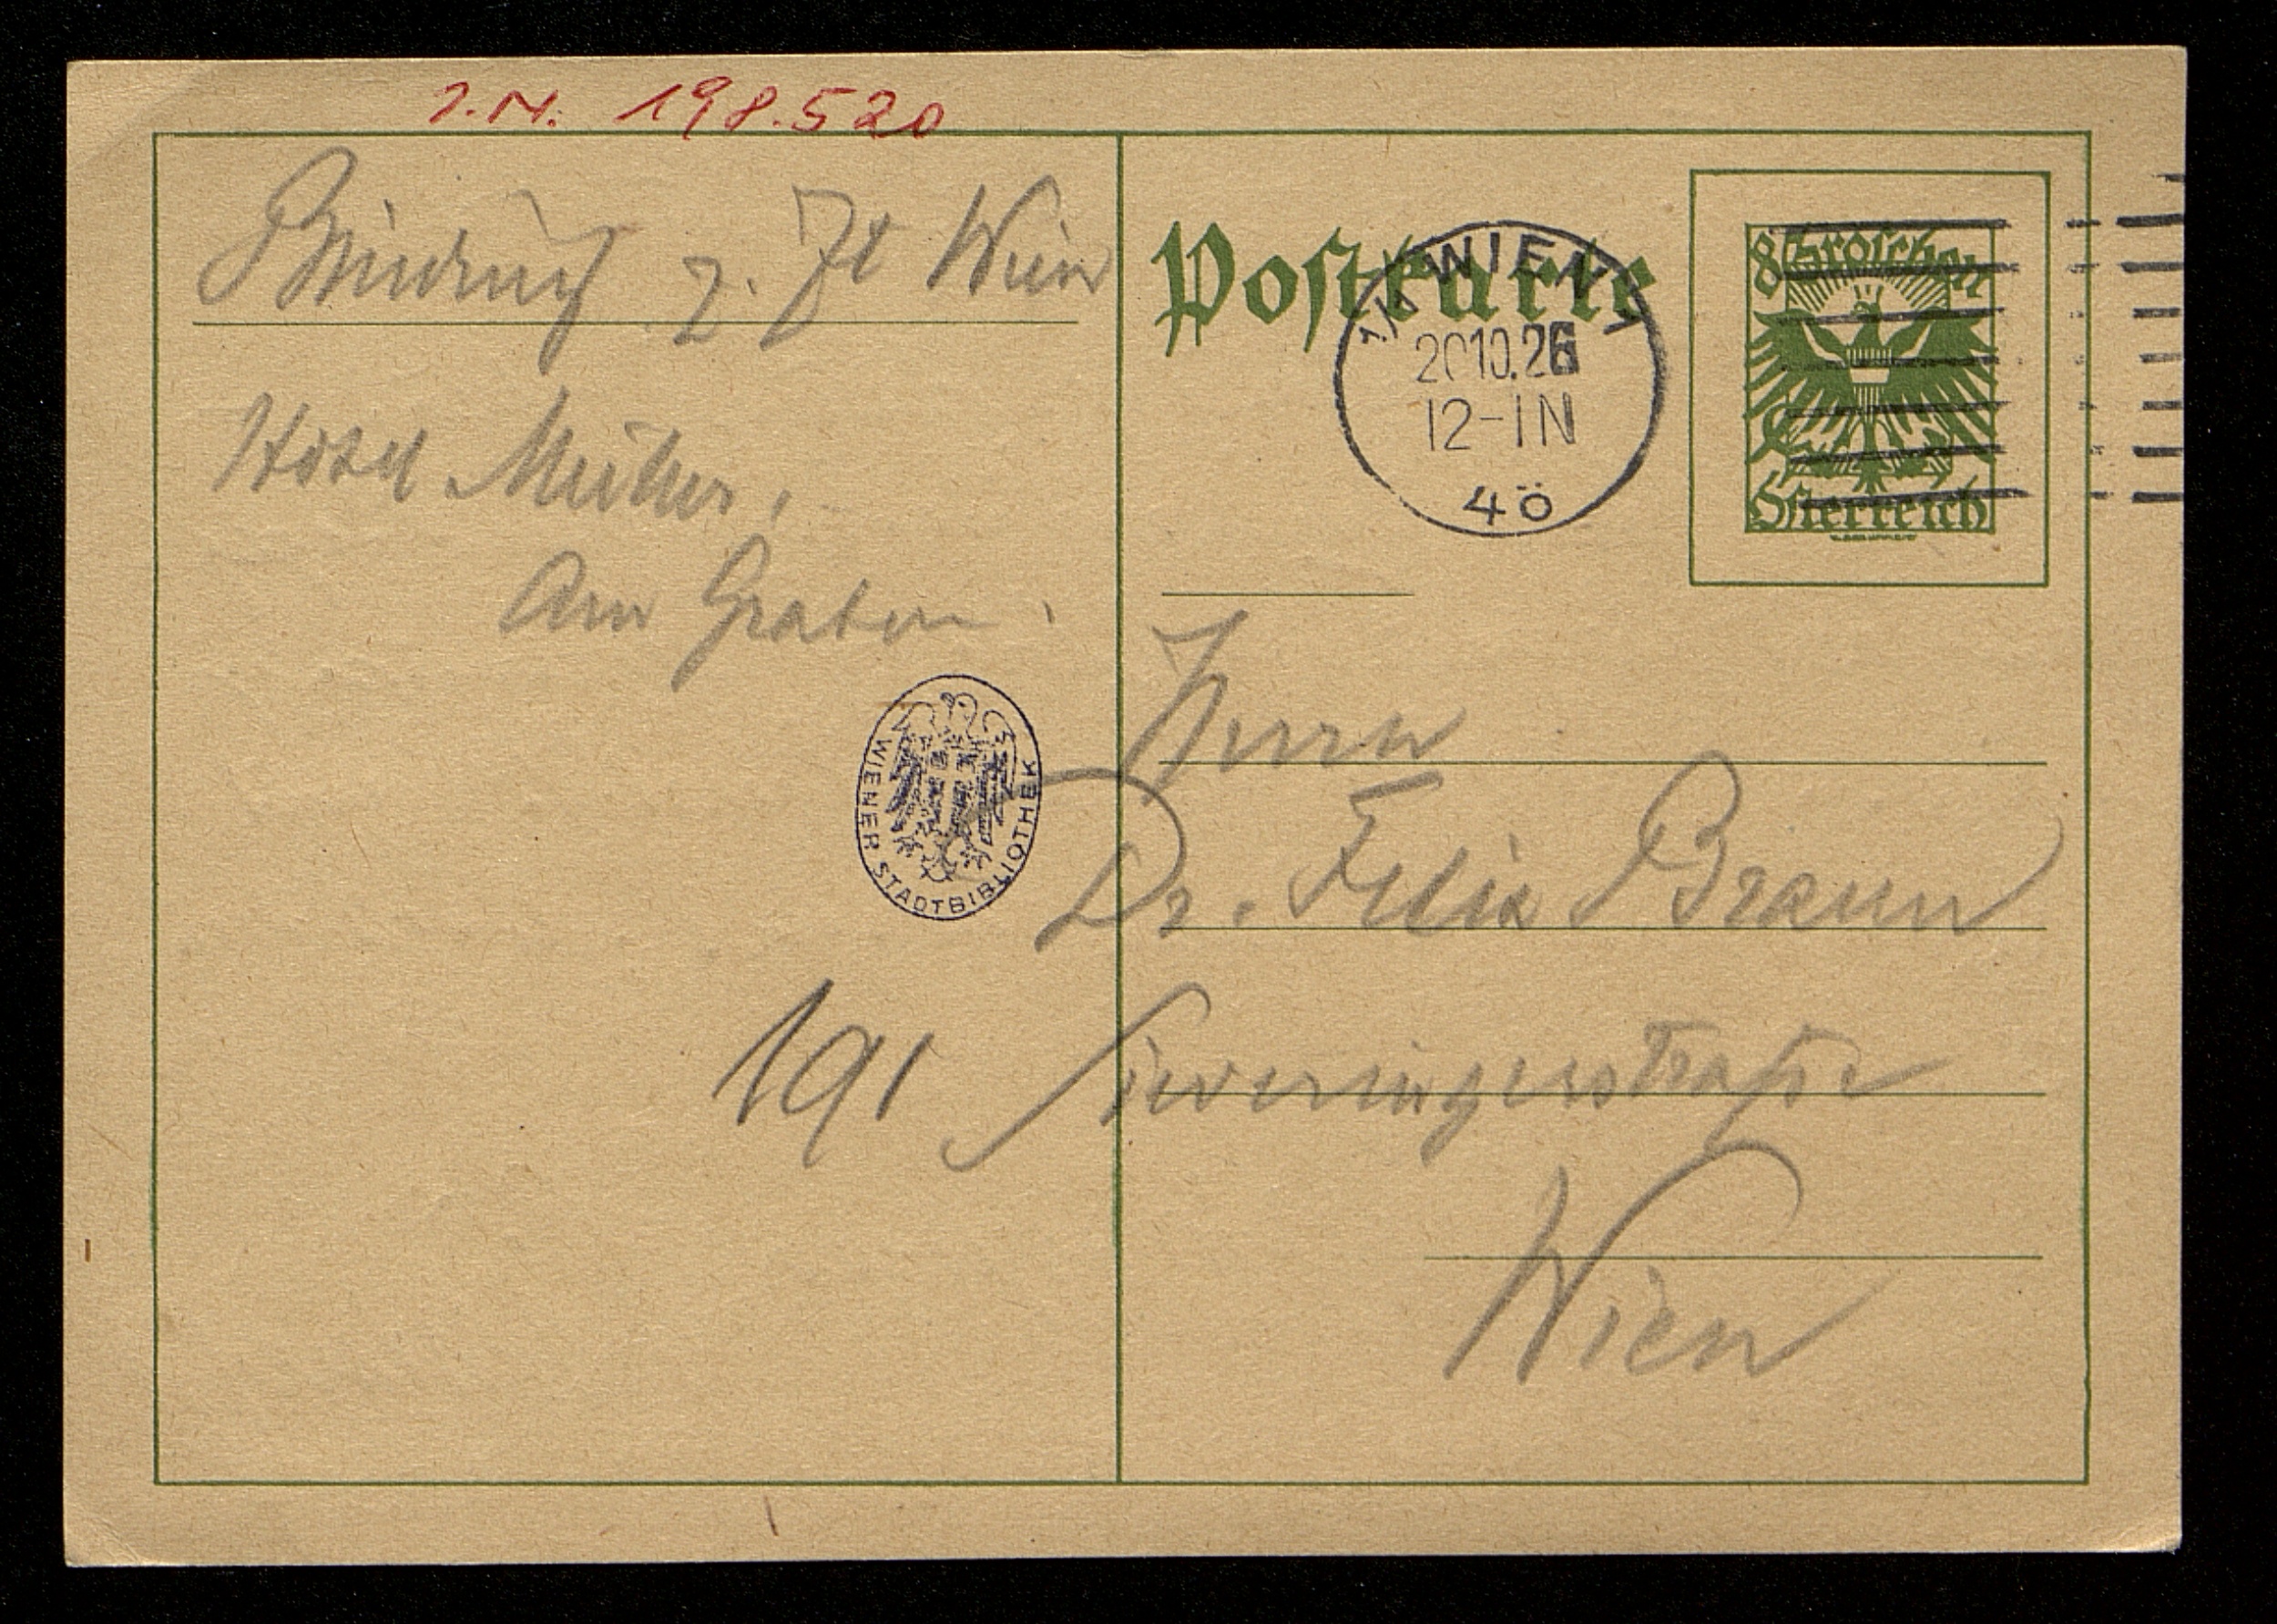 I.N. 198.520
z. Zt Wien
Hotel Müller,
Am Graben.
Postkarte
1/1 WIEN 1
20.10.26
12-1N
4ö
8 Groschen
Österreich
WIENER STADTBIBLIOTHEK
Herrn
Dr. Felix Braun
191 Sieveringerstraße
Wien